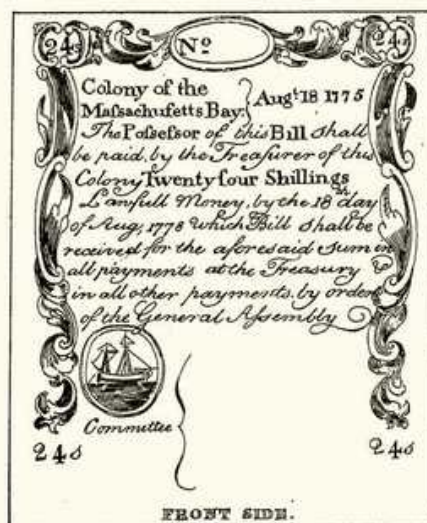 24s Nº 24s
Colony of the
Maſsachuſetts Bay. } Augt. 18 1775
The Poſseſsor of this Bill shall
be paid, by the Treaſurer of this
Colony Twenty four Shillings
Lawfull Money, by the 18 day
of Aug, 1778 which Bill shall be
received for the aforesaid sum in
all payments at the Treasury &
in all other payments by order
of the General Aſsembly
Committee {
24s 24s
FRONT SIDE.